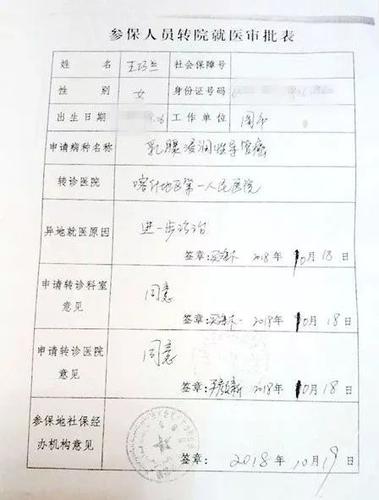 参保人员转院就医审批表
姓名 王巧兰 社会保障号
性别 女 身份证号码
出生日期 工作单位
申请病种名称 乳腺浸润性导管癌
转诊医院 喀什地区第一人民医院
异地就医原因 进一步诊治
签章: 2018年10月18日
申请转诊科室意见 同意
签章: 2018年10月18日
申请转诊医院意见 同意
签章: 2018年10月18日
参保地社保经办机构意见
签章: 2018年10月19日